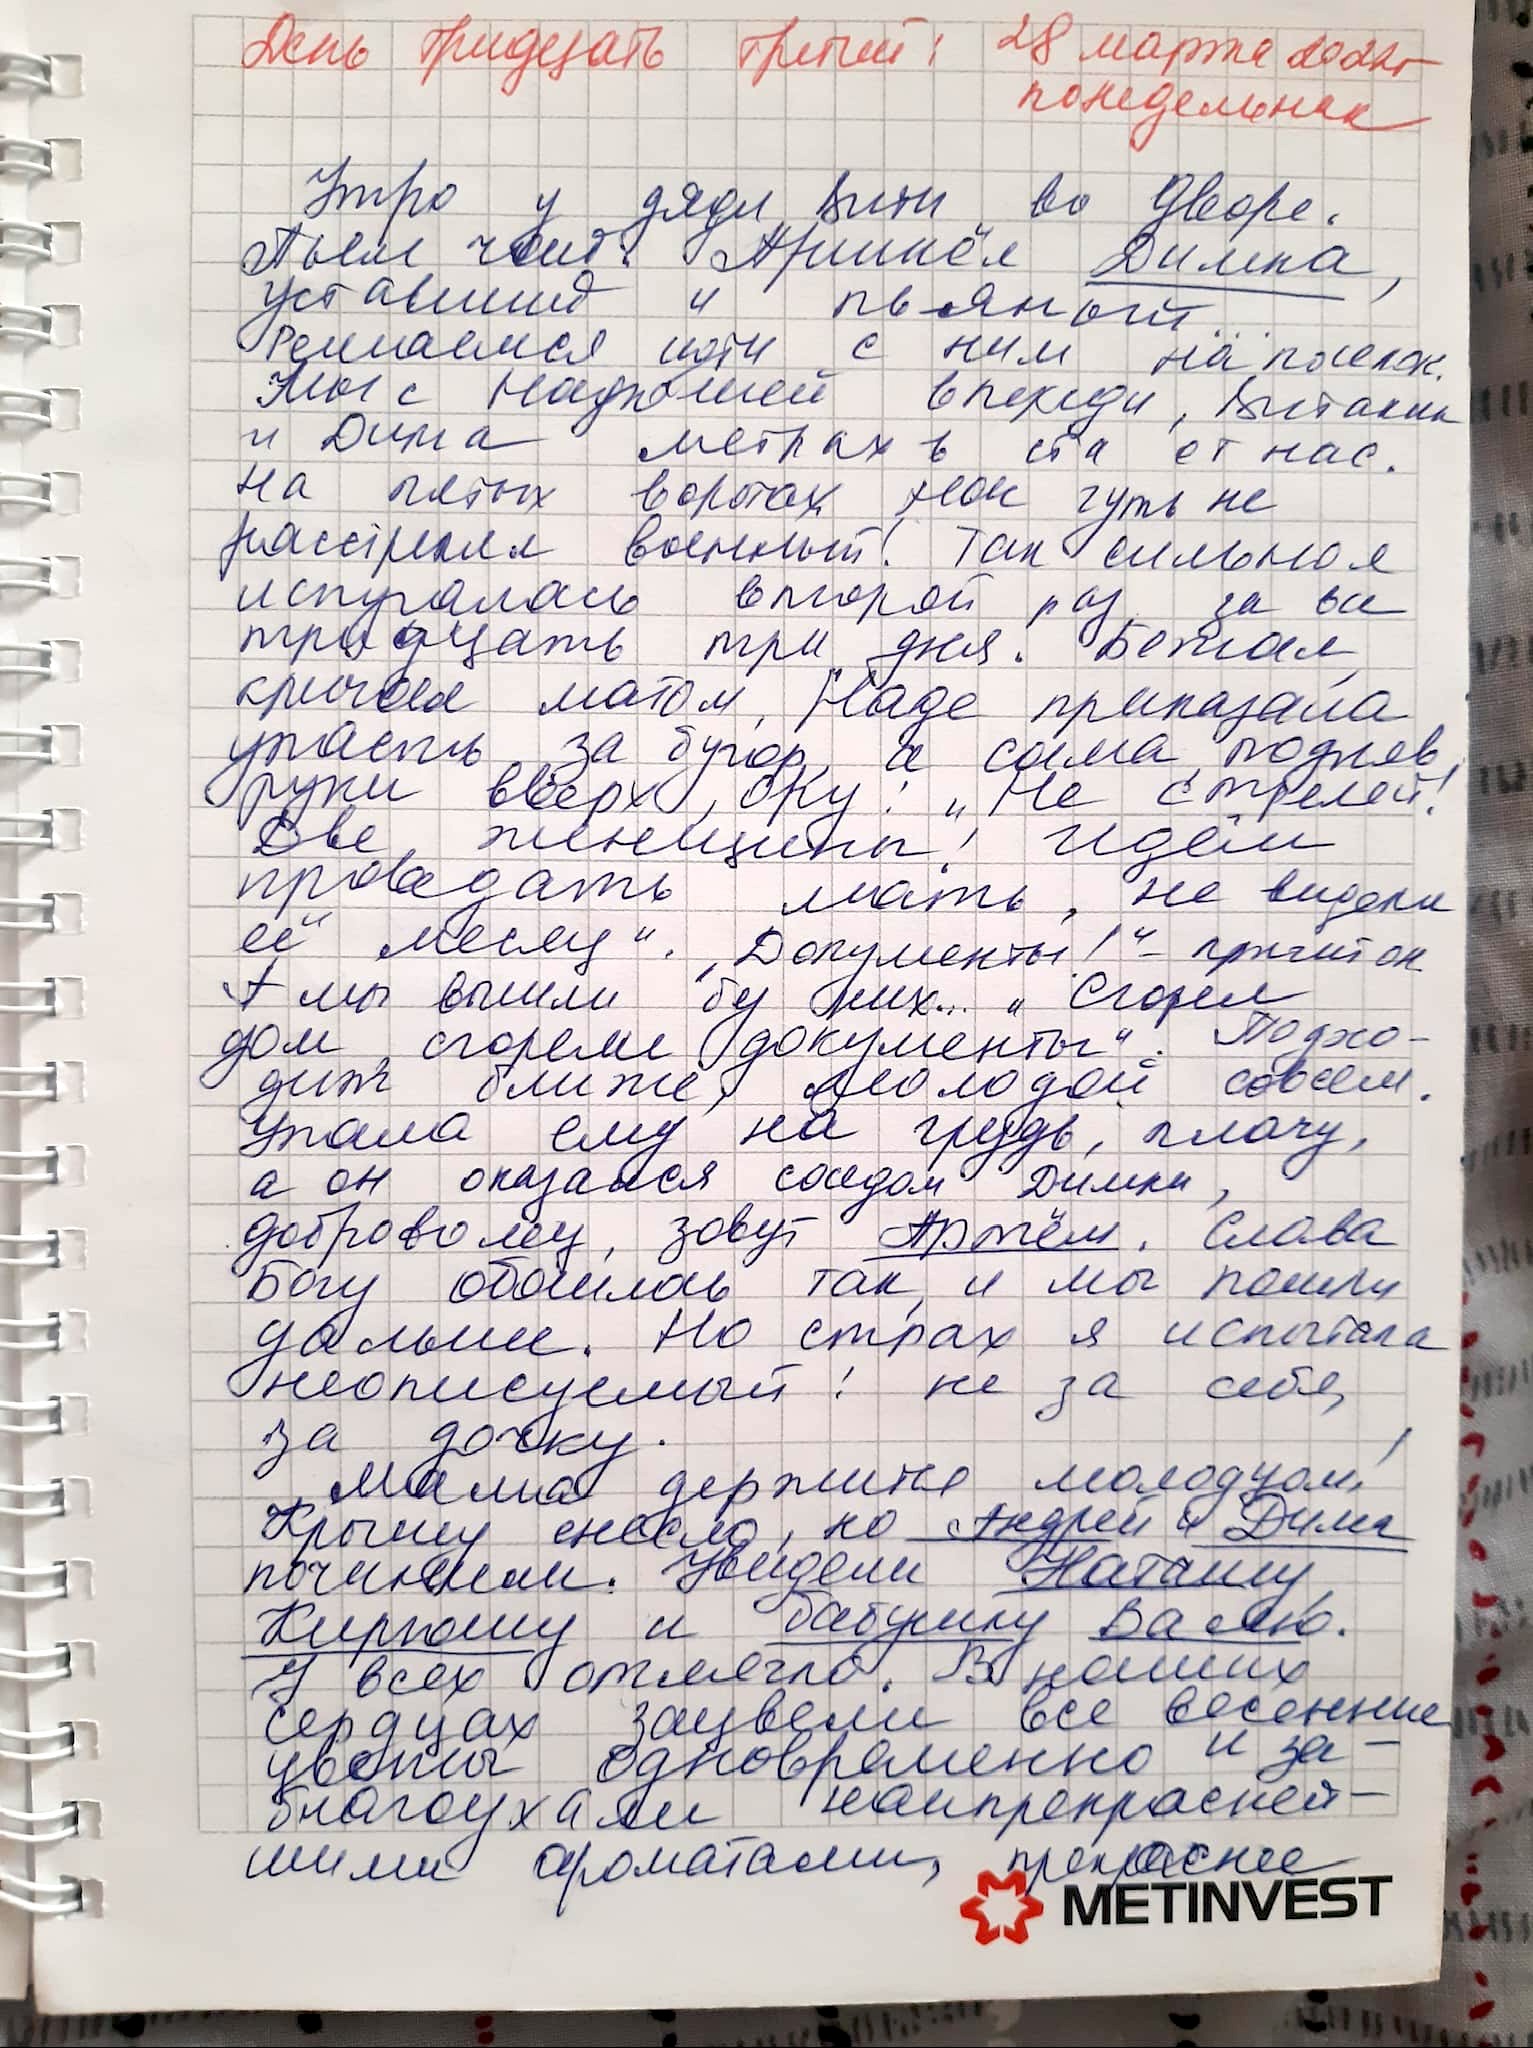 День тридцать третий: 28 марта 2022г
понедельник
Утро у дяди Вити во дворе.
Пьем чай. Пришёл Димка,
уставший и пьяный...
Решаемся идти с ним на поселок.
Мы с Надюшей впереди, Виталик
и Дима метрах в ста от нас.
На пятых воротах нас чуть не
расстрелял военный! Так сильно я
испугалась второй раз за все
тридцать три дня. Бежал,
кричал матом, Наде приказала
упасть за бугор, а сама, подняв
руки вверх, ору: „Не стреляй!
Две женщины! Идём
проведать мать, не видели
её месяц". „Документы!" - кричит он
А мы вышли без них... „Сгорел
дом, сгорели документы". Подхо-
дит ближе, молодой совсем.
Упала ему на грудь, плачу,
а он оказался соседом Димки,
доброволец, зовут Артём. Слава
Богу обошлось так, и мы пошли
дальше. Но страх я испытала
неописуемый! не за себя,
за дочку.
Мама держится молодцом!
Крышу снесло, но Андрей и Дима
починили. Увидели Наташу,
Кирюшу и бабушку Валю.
У всех отлегло. В наших
сердцах зацвели все весенние
цветы одновременно и за-
благоухали наипрекрасней-
шими ароматами, прекраснее
METINVEST